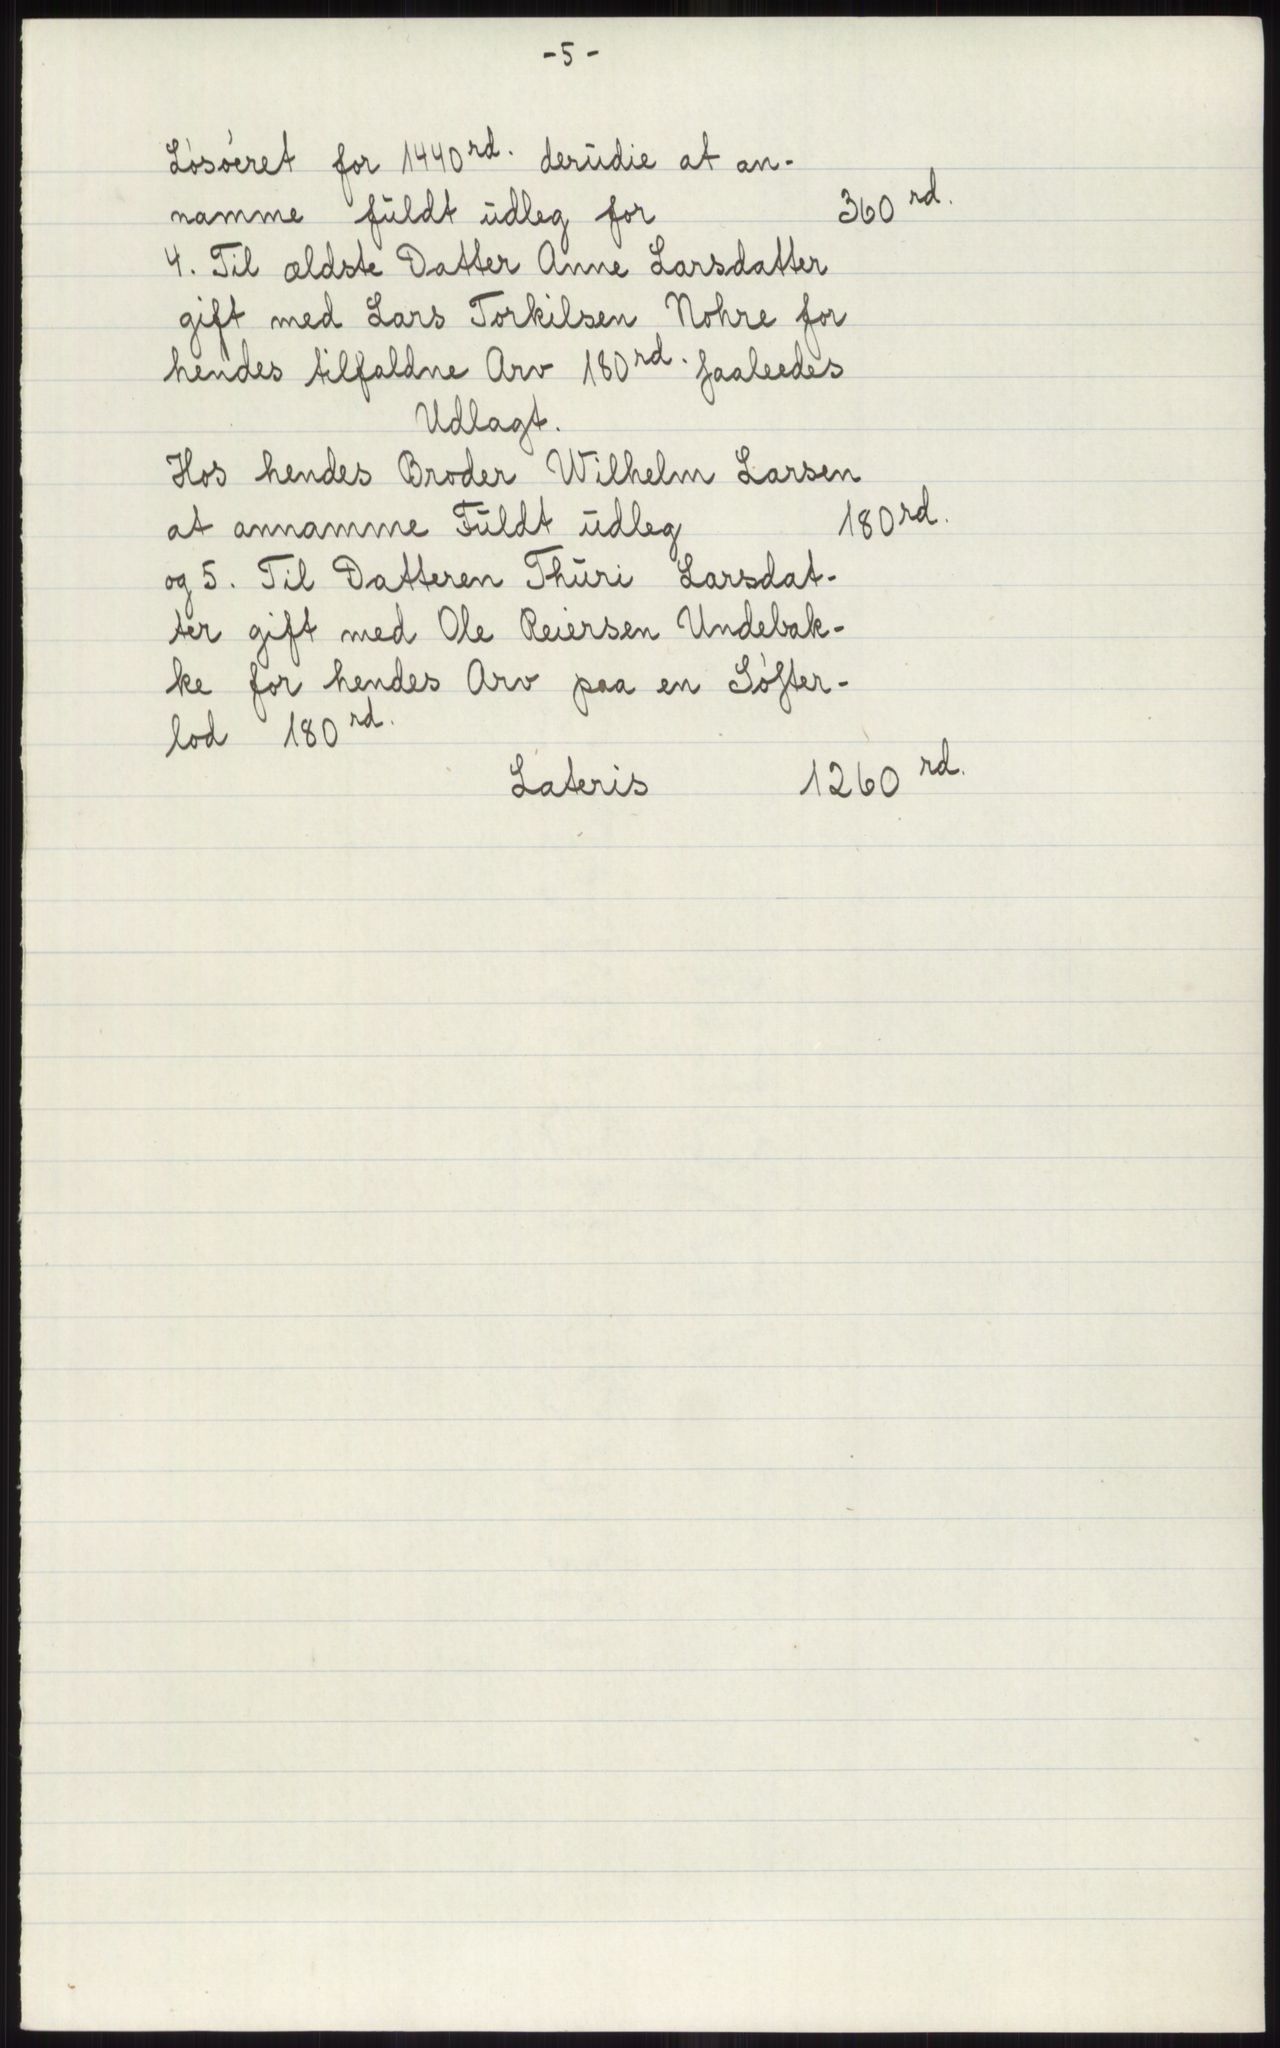 -5-
Løsøeret for 1440 rd. derudie at an-
namme fuldt udleg for 360 rd.
4. Til ældste Datter Anne Larsdatter
gift med Lars Torkilsen Nohre for
hendes tilfaldne Arv 180 rd. saaleedes
Udlagt.
Hos hendes Broder Wilhelm Larsen
at annamme Fuldt udleg 180 rd.
og 5. Til Datteren Thuri Larsdat-
ter gift med Ole Reiersen Undebak-
ke for hendes Arv paa en Søster-
lod 180 rd.
Lateris 1260 rd.